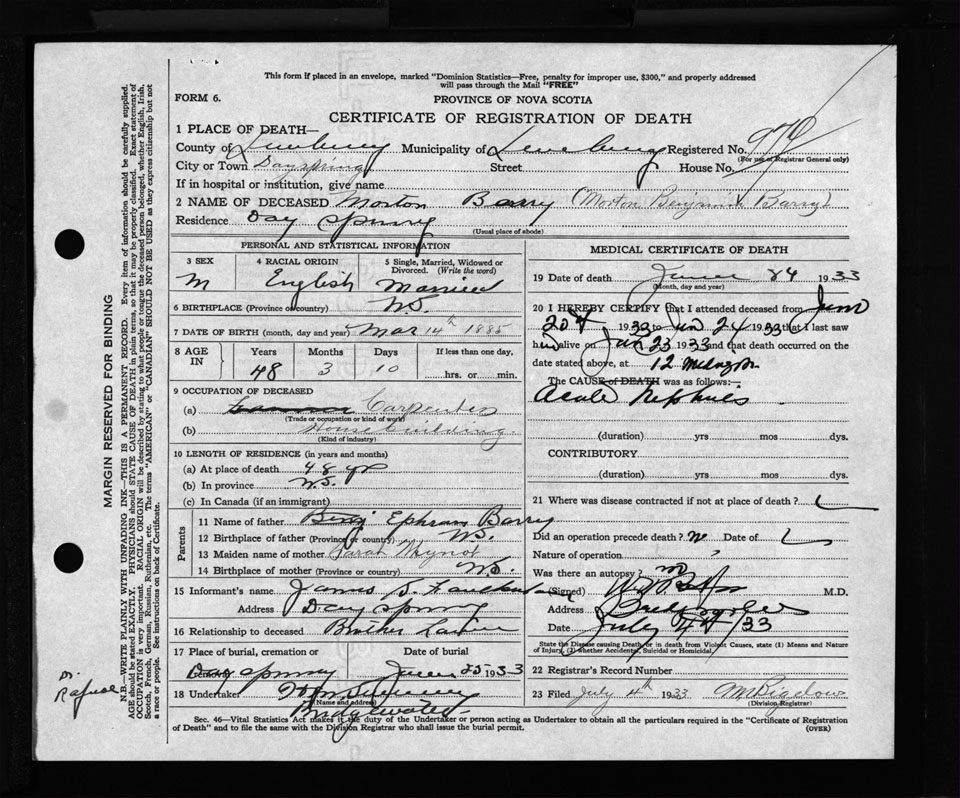 This form if placed in an envelope, marked "Dominion Statistics—Free, penalty for improper use, $300," and properly addressed
will pass through the Mail "FREE"
FORM 6.
PROVINCE OF NOVA SCOTIA
CERTIFICATE OF REGISTRATION OF DEATH
1 PLACE OF DEATH—
County of Lunenburg Municipality of Lunenburg Registered No.
(For use of Registrar General only)
City or Town Dayspring Street House No.
If in hospital or institution, give name
2 NAME OF DECEASED Morton Barry (Morton Benjamin Barry)
Residence Day Spring
(Usual place of abode)
PERSONAL AND STATISTICAL INFORMATION
3 SEX 4 RACIAL ORIGIN 5 Single, Married, Widowed or
Divorced. (Write the word)
M English Married
6 BIRTHPLACE (Province or country) N.S.
7 DATE OF BIRTH (month, day and year) Mar 14th 1885
8 AGE IN Years Months Days If less than one day,
48 3 10 hrs. or min.
9 OCCUPATION OF DECEASED
(a) Carpenter
(Trade or occupation or kind of work)
(b) House building
(Kind of industry)
10 LENGTH OF RESIDENCE (in years and months)
(a) At place of death 48 yrs
(b) In province N.S.
(c) In Canada (if an immigrant)
Parents
11 Name of father Ephram Barry
12 Birthplace of father (Province or country) N.S.
13 Maiden name of mother Sarah Wynot
14 Birthplace of mother (Province or country) N.S.
15 Informant's name James
Address Day Spring
16 Relationship to deceased Brother Law
17 Place of burial, cremation or Date of burial
Day Spring June 25 1933
18 Undertaker
(Name and address)
Bridgewater
MEDICAL CERTIFICATE OF DEATH
19 Date of death June 24 1933
(Month, day and year)
20 I HEREBY CERTIFY that I attended deceased from June
20th 1933 to Jun 24 1933 that I last saw
him alive on Jun 23 1933 and that death occurred on the
date stated above, at 12
The CAUSE OF DEATH was as follows:—
Acute Nephritis
(duration) yrs mos dys.
CONTRIBUTORY
(duration) yrs mos dys.
21 Where was disease contracted if not at place of death?
Did an operation precede death? no Date of
Nature of operation
Was there an autopsy? no
(Signed) M.D.
Address Bridgewater
Date July 4th/33
State the Disease causing Death or in death from Violent Causes, state (1) Means and Nature
of Injury, (2) whether Accidental, Suicidal or Homicidal.
22 Registrar's Record Number
23 Filed July 4th 1933 M Bigelow
(Division Registrar)
Sec. 46—Vital Statistics Act makes it the duty of the Undertaker or person acting as Undertaker to obtain all the particulars required in the "Certificate of Registration
of Death" and to file the same with the Division Registrar who shall issue the burial permit.
(OVER)
MARGIN RESERVED FOR BINDING
N.B.—WRITE PLAINLY WITH UNFADING INK—THIS IS A PERMANENT RECORD. Every item of information should be carefully supplied.
AGE should be stated EXACTLY. PHYSICIANS should STATE CAUSE OF DEATH in plain terms, so that it may be properly classified. Exact statement of
OCCUPATION is very important. RACIAL ORIGIN will be described by stating to what people or tongue the deceased person belonged, whether English, Irish,
Scotch, French, German, Russian, Ruthenian, etc. The terms "AMERICAN" or "CANADIAN" SHOULD NOT BE USED as they express citizenship but not
a race or people. See instructions on back of Certificate.
Dr.
Rafuse